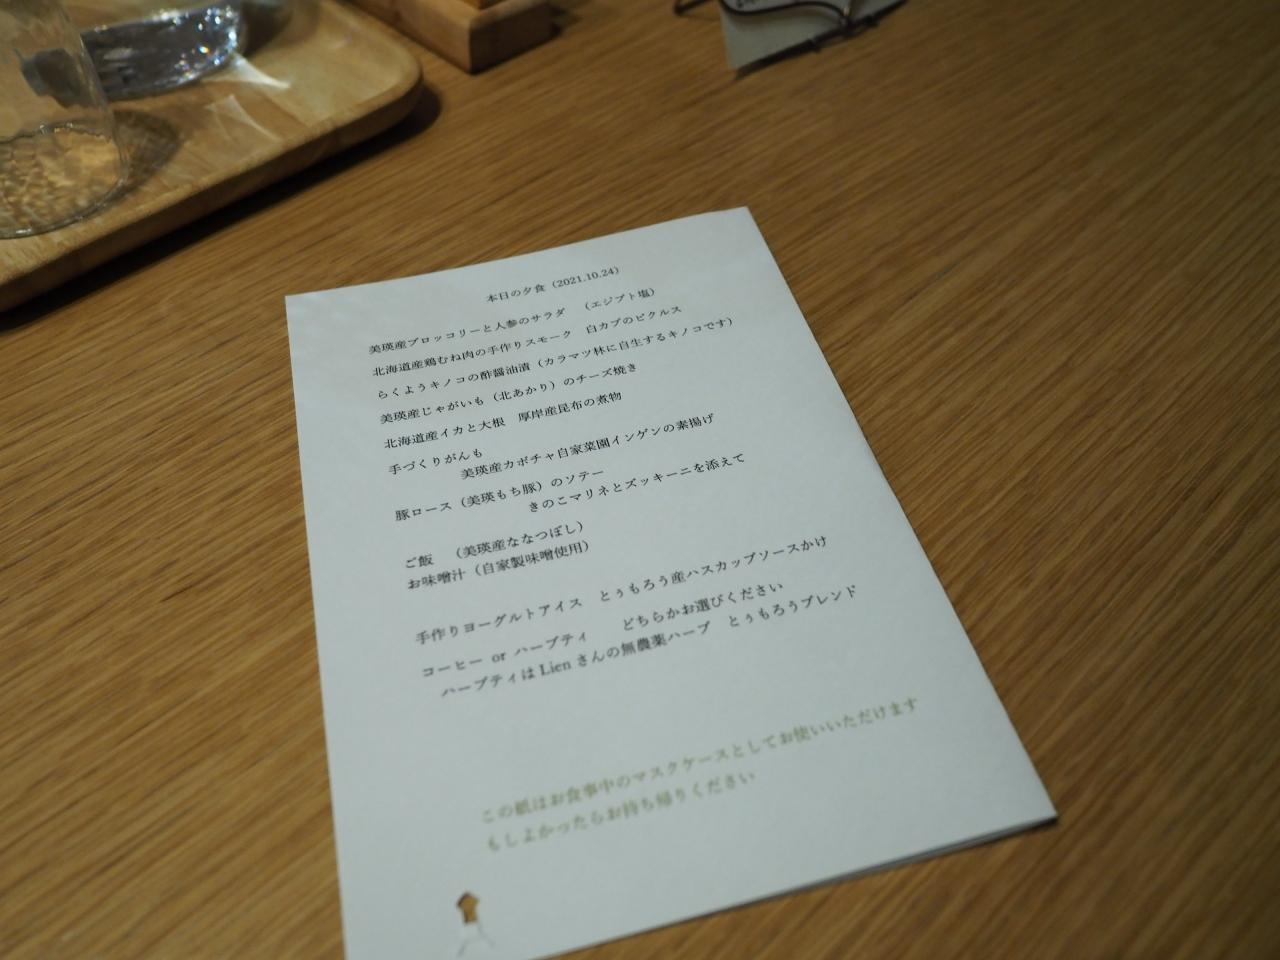 本日の夕食（2021.10.24）
美瑛産ブロッコリーと人参のサラダ　（エジプト塩）
北海道産鶏むね肉の手作りスモーク　白カブのピクルス
らくようキノコの酢醤油漬（カラマツ林に自生するキノコです）
美瑛産じゃがいも（北あかり）のチーズ焼き
北海道産イカと大根　厚岸産昆布の煮物
手づくりがんも
美瑛産カボチャ自家菜園インゲンの素揚げ
豚ロース（美瑛もち豚）のソテー
きのこマリネとズッキーニを添えて
ご飯　（美瑛産ななつぼし）
お味噌汁（自家製味噌使用）
手作りヨーグルトアイス　とぅもろう産ハスカップソースかけ
コーヒー or ハーブティ　　どちらかお選びください
ハーブティは Lien さんの無農薬ハーブ　とぅもろうブレンド
この紙はお食事中のマスクケースとしてお使いいただけます
もしよかったらお持ち帰りください